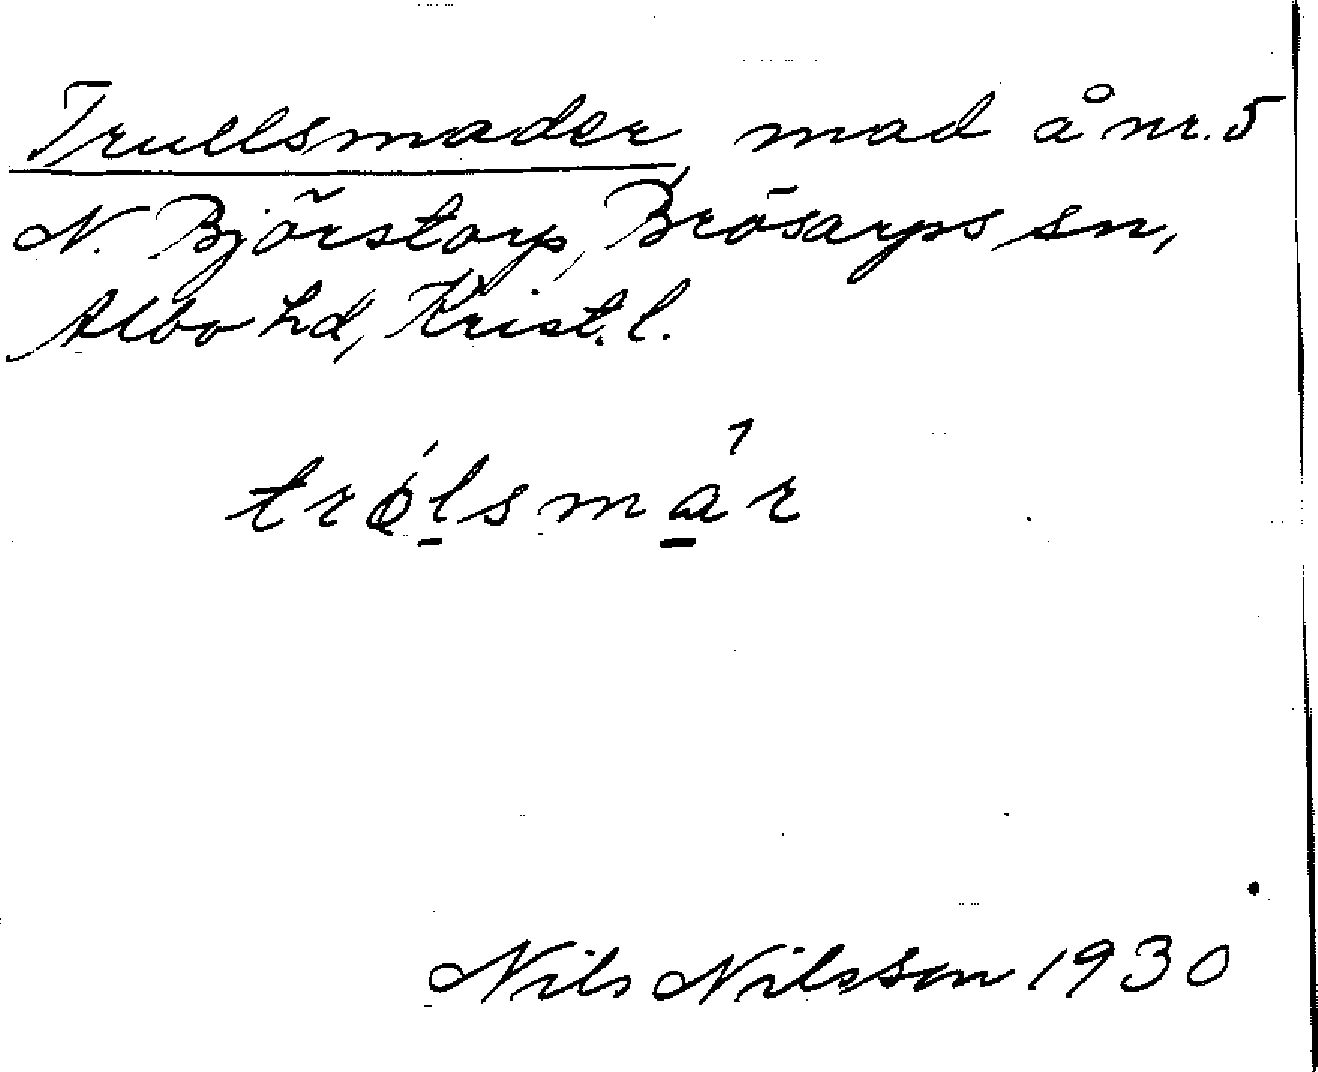 Trullsmader, mad å nr. 5
N. Björstorp, Brösarps sn,
Albo hd, Krist. l.
trølsmar
Nils Nilsson 1930